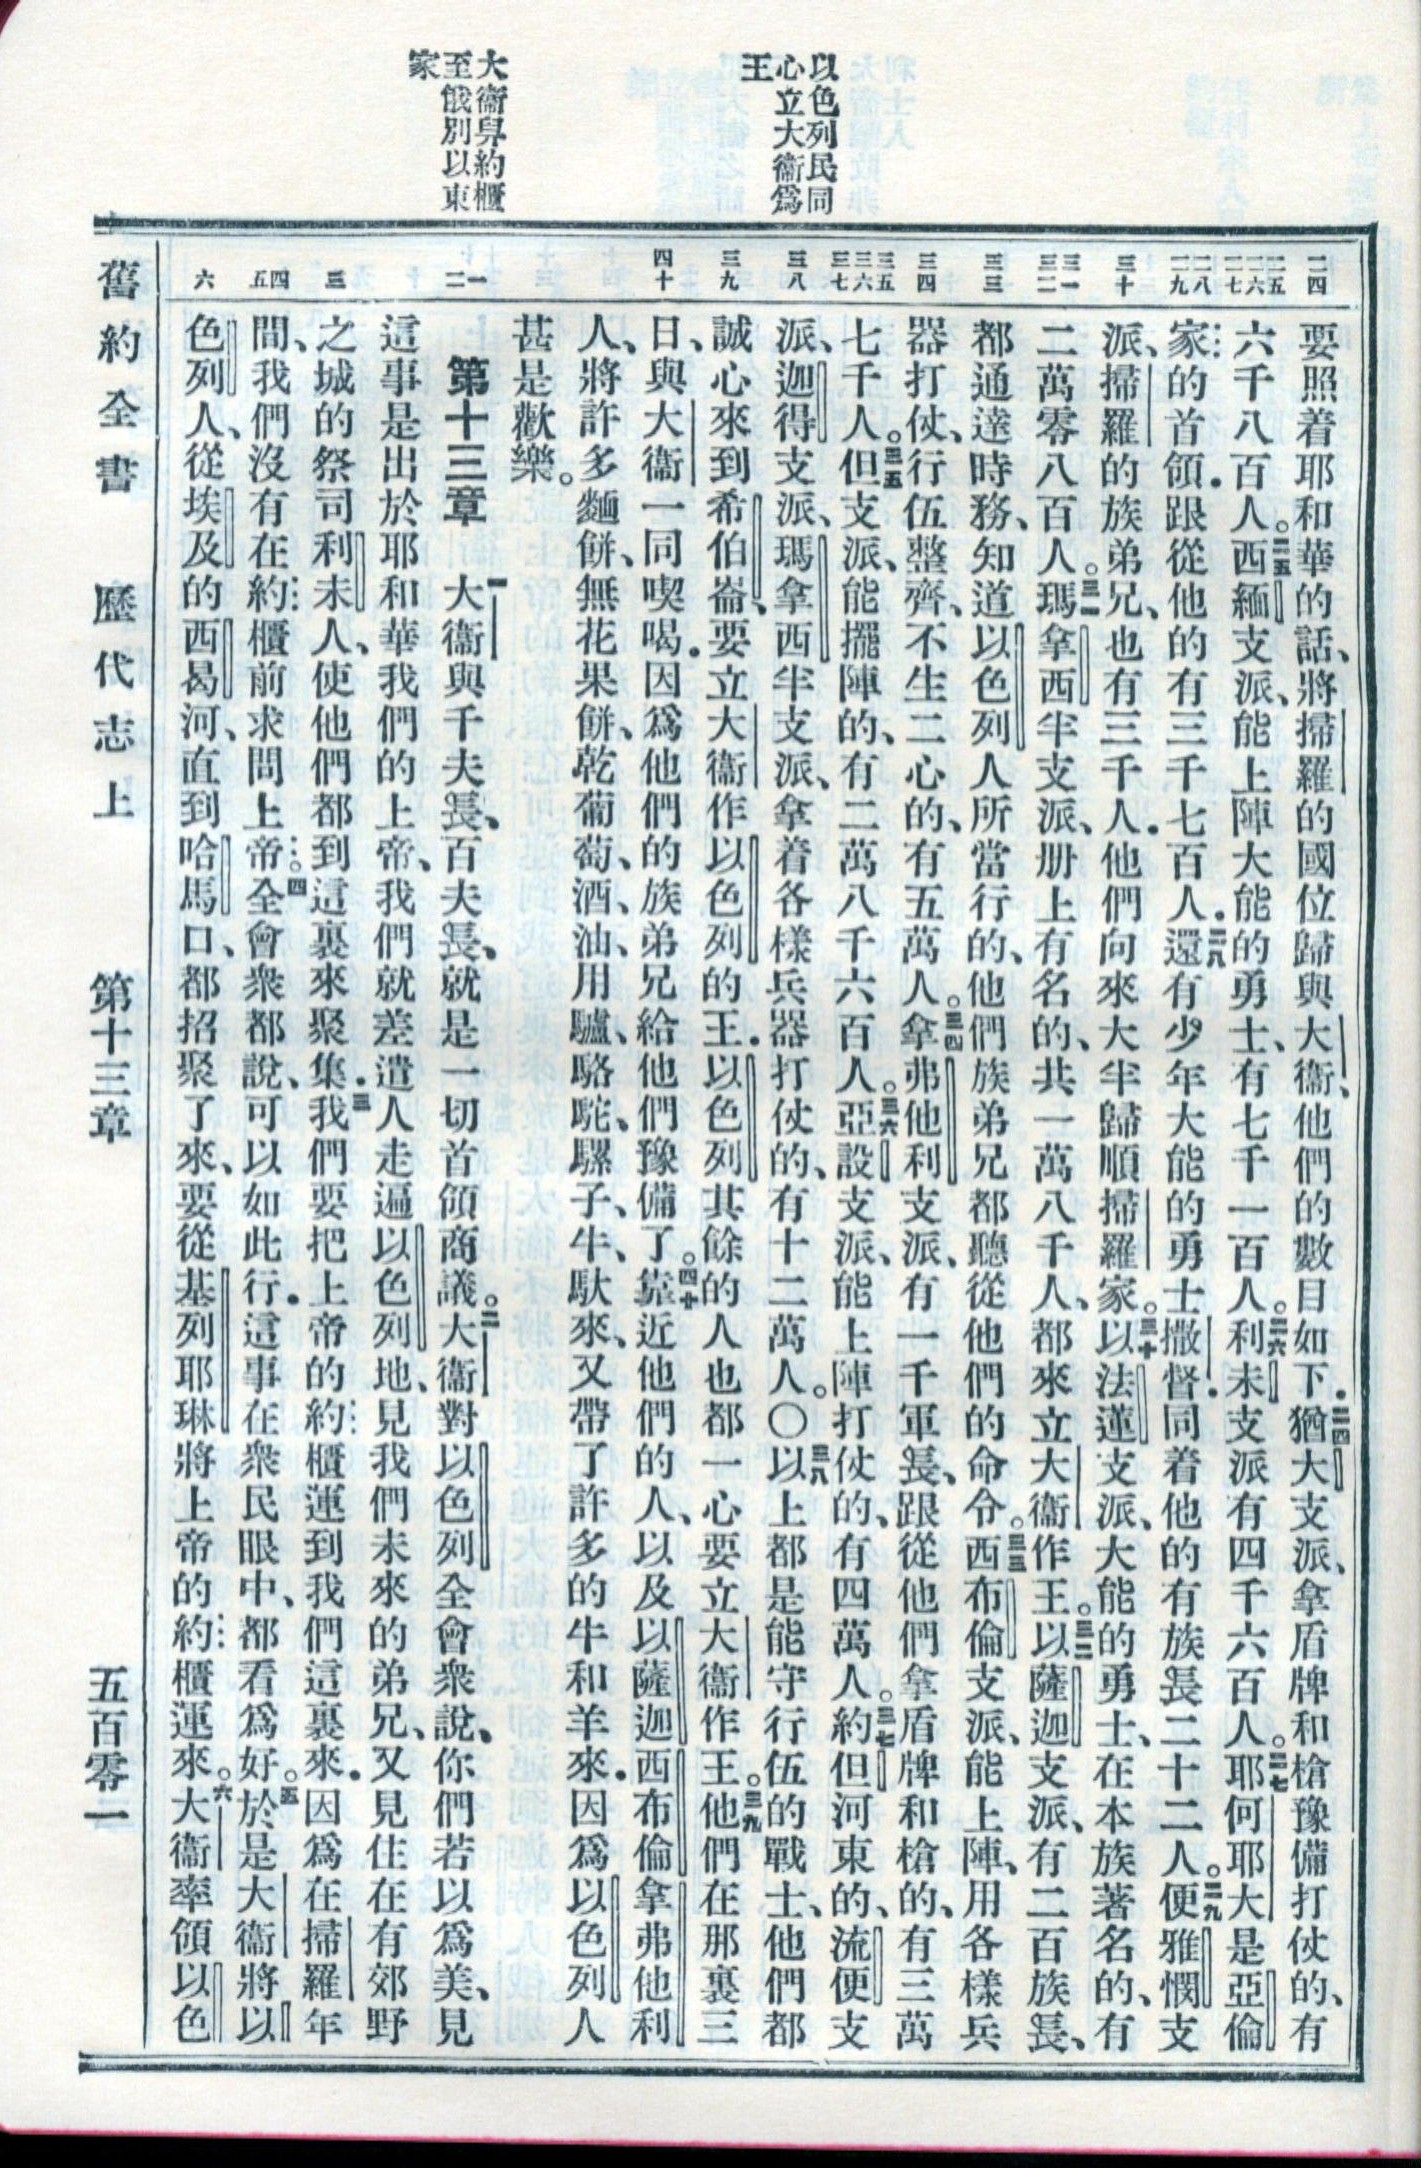 以色列民同
心立大衞爲
王
大衞舁約櫃
至俄別以東
家
二四
二五 二六 二七
二八 二九
三十
三一 三二
三三
三四
三五 三六 三七
三八
三九
四十
一 二
三
四 五
六
要照着耶和華的話、將掃羅的國位歸與大衞、他們的數目如下.二四猶大支派、拿盾牌和槍豫備打仗的、有
六千八百人。二五西緬支派、能上陣大能的勇士、有七千一百人。二六利未支派有四千六百人。二七耶何耶大是亞倫
家的首領.跟從他的有三千七百人.二八還有少年大能的勇士撒督.同着他的有族長二十二人。二九便雅憫支
派、掃羅的族弟兄、也有三千人.他們向來大半歸順掃羅家。三十以法蓮支派、大能的勇士、在本族著名的、有
二萬零八百人。三一瑪拿西半支派、册上有名的、共一萬八千人、都來立大衞作王。三二以薩迦支派、有二百族長、
都通達時務、知道以色列人所當行的、他們族弟兄都聽從他們的命令。三三西布倫支派、能上陣、用各樣兵
器打仗、行伍整齊、不生二心的、有五萬人。三四拿弗他利支派、有一千軍長、跟從他們拿盾牌和槍的、有三萬
七千人。三五但支派、能擺陣的、有二萬八千六百人。三六亞設支派、能上陣打仗的、有四萬人。三七約但河東的、流便支
派、迦得支派、瑪拿西半支派、拿着各樣兵器打仗的、有十二萬人。〇三八以上都是能守行伍的戰士、他們都
誠心來到希伯崙、要立大衞作以色列的王.以色列其餘的人也都一心要立大衞作王。三九他們在那裏三
日、與大衞一同喫喝.因爲他們的族弟兄給他們豫備了。四十靠近他們的人、以及以薩迦西布倫拿弗他利
人、將許多麵餅、無花果餅、乾葡萄、酒、油、用驢、駱駝、騾子、牛、馱來、又帶了許多的牛和羊來.因爲以色列人
甚是歡樂。
第十三章 一大衞與千夫長、百夫長、就是一切首領商議。二大衞對以色列全會衆說、你們若以爲美、見
這事是出於耶和華我們的上帝、我們就差遣人走遍以色列地、見我們未來的弟兄、又見住在有郊野
之城的祭司利未人、使他們都到這裏來聚集.三我們要把上帝的約櫃運到我們這裏來.因爲在掃羅年
間、我們沒有在約櫃前求問上帝。四全會衆都說、可以如此行.這事在衆民眼中、都看爲好。五於是大衞將以
色列人、從埃及的西曷河、直到哈馬口、都招聚了來、要從基列耶琳將上帝的約櫃運來。六大衞率領以色
舊約全書 歷代志上 第十三章 五百零一